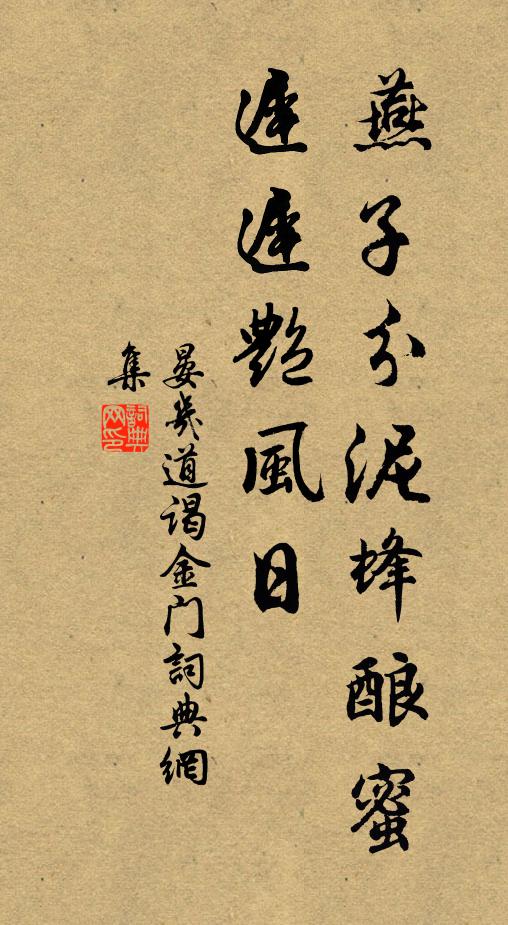 燕子分泥蜂酿蜜
遲遲艶風日
晏幾道谒金门詞典網
集
詞典网印